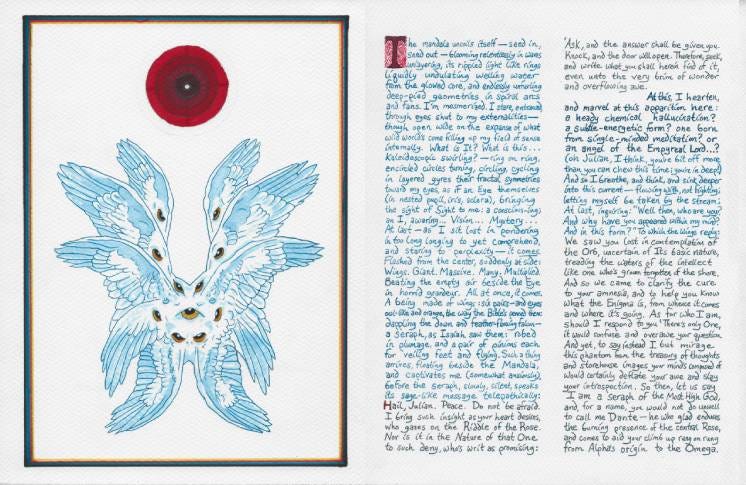 The mandala uncoils itself — seed in,
seed out — blooming relentlessly in waves
unlayering, its rippled light like rings
liquidly undulating welling water
from the glowed core, and endlessly unfurling
deep-pied geometries in spiral arcs
and fans. I'm mesmerized. I stare, entranced
through eyes shut to my externalities —
though open wide on the expanse of what
wild world's come filling up my field of sense
internally. What is It? What is this...
Kaleidoscopic swirling? — ring on ring,
encircled circles turning, circling, cycling
in layered gyres their fractal symmetries
toward my eyes, as if an Eye themselves
(in nested pupil, iris, sclera), bringing
the sight of Sight to me: a conscious-ing;
an I, awaring... Vision... Mystery...
At last — as I sit lost in pondering
in too long longing to yet comprehend,
and staring to perplexity — it comes.
Flashed from the center, suddenly at side:
Wings. Giant. Massive. Many. Multiplied.
Beating the empty air beside the Eye
in horrid grandeur. All at once, it comes.
A being made of wings: six pairs — and eyes
out-like and orange, the way the Bible's penned them:
dappling the down and feather-flowing falcon —
a Seraph, as Isaiah saw them: robed
in plumage, and a pair of pinions each
for veiling feet and flying. Such a thing
arrives, floating beside the Mandala,
and captivates me (somewhat anxiously),
before the seraph, slowly, silent, speaks
its sage-like message telepathically:
Hail, Julian. Peace. Do not be afraid.
I bring such insight as your heart desires,
who gazes on the Riddle of the Rose.
Nor is it in the Nature of that One
to such deny, who's writ as promising:
'Ask, and the answer shall be given you.
Knock, and the door will open.' Therefore, seek,
and write what you shall herein find of it,
even unto the very brim of wonder
and overflowing awe.
At this, I hearten,
and marvel at this apparition here:
a heady chemical hallucination?
a subtle-energetic form? one born
from single-minded meditation? or
an angel of the Empyreal Lord...?
(oh Julian, I think, you've bit off more
than you can chew this time; you're in deep!)
And so I breathe, and think, and sink deeper
into this current — flowing with, not fighting;
letting myself be taken by the stream:
At last, inquiring: "Well then, who are you?
And why have you appeared within my mind?
And in this form?" To which the Wings reply:
We saw you lost in contemplation of
the Orb, uncertain of Its basic nature,
treading the waters of the intellect
like one who's grown forgotten of the shore.
And so we came to clarify the cure
to your amnesia, and to help you know
what the Enigma is, from whence it comes
and where it's going. As for who I am,
should I respond to you 'There's only One,'
it would confuse and overawe your question.
And yet, to say instead I but mirage
this phantom from the treasury of thoughts
and storehouse images your mind's composed of
would certainly deflate your awe and slay
your introspection. So then, let us say
I am a seraph of the Most High God,
and, for a name, you would not do unwell
to call me Dante — he who glad endures
the burning presence of the central Rose,
and comes to aid your climb up rung on rung
from Alpha's origin to the Omega.